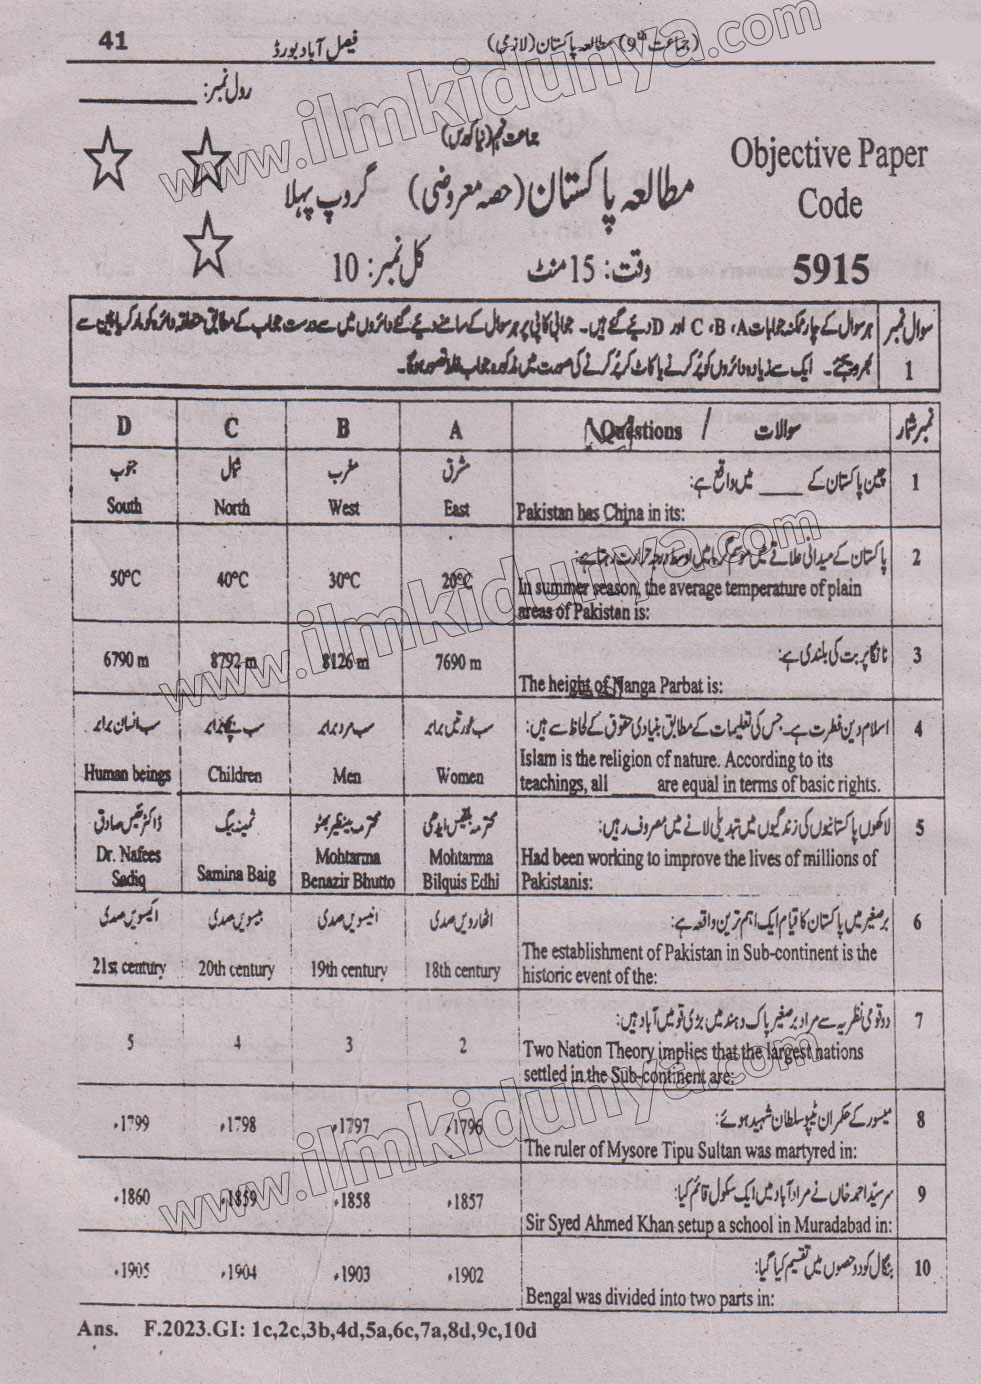 41
فیصل آباد بورڈ
(جماعت 9th) مطالعہ پاکستان (لازمی)
رول نمبر: ________
جماعت نہم (نیا کورس)
مطالعہ پاکستان (حصہ معروضی) گروپ پہلا
وقت: 15 منٹ
کل نمبر: 10
Objective Paper
Code
5915
سوال نمبر 1
ہر سوال کے چار ممکنہ جوابات A، B، C اور D دیئے گئے ہیں۔ جوابی کاپی پر ہر سوال کے سامنے دیئے گئے دائروں میں سے درست جواب کے مطابق متعلقہ دائرہ کو مارکر یا پین سے
بھر دیجئے۔ ایک سے زیادہ دائروں کو پُر کرنے یا کاٹ کر پُر کرنے کی صورت میں مذکورہ جواب غلط تصور ہوگا۔
نمبر شمار سوالات / Questions A B C D
1 چین پاکستان کے ____ میں واقع ہے:
Pakistan has China in its:
مشرق مغرب شمال جنوب
East West North South
2 پاکستان کے میدانی علاقے میں موسم گرما میں اوسط درجہ حرارت رہتا ہے:
In summer season, the average temperature of plain
areas of Pakistan is:
20°C 30°C 40°C 50°C
3 نانگا پربت کی بلندی ہے:
The height of Nanga Parbat is:
7690 m 8126 m 8792 m 6790 m
4 اسلام دین فطرت ہے۔ جس کی تعلیمات کے مطابق بنیادی حقوق کے لحاظ سے ہیں:
Islam is the religion of nature. According to its
teachings, all ____ are equal in terms of basic rights.
سب عورتیں برابر سب مرد برابر سب بچے برابر سب انسان برابر
Women Men Children Human beings
5 لاکھوں پاکستانیوں کی زندگیوں میں تبدیلی لانے میں معروف رہیں:
Had been working to improve the lives of millions of
Pakistanis:
محترمہ بلقیس ایدھی محترمہ بینظیر بھٹو ثمینہ بیگ ڈاکٹر نفیس صادق
Mohtarma Bilquis Edhi Mohtarma Benazir Bhutto Samina Baig Dr. Nafees Sadiq
6 برصغیر میں پاکستان کا قیام ایک اہم ترین واقعہ ہے:
The establishment of Pakistan in Sub-continent is the
historic event of the:
اٹھارویں صدی انیسویں صدی بیسویں صدی اکیسویں صدی
18th century 19th century 20th century 21st century
7 دو قومی نظریہ سے مراد برصغیر پاک و ہند میں بڑی قومیں آباد ہیں:
Two Nation Theory implies that the largest nations
settled in the Sub-continent are:
2 3 4 5
8 میسور کے حکمران ٹیپو سلطان شہید ہوئے:
The ruler of Mysore Tipu Sultan was martyred in:
1796ء 1797ء 1798ء 1799ء
9 سرسید احمد خاں نے مراد آباد میں ایک سکول قائم کیا:
Sir Syed Ahmed Khan setup a school in Muradabad in:
1857ء 1858ء 1859ء 1860ء
10 بنگال کو دو حصوں میں تقسیم کیا گیا:
Bengal was divided into two parts in:
1902ء 1903ء 1904ء 1905ء
Ans. F.2023.GI: 1c,2c,3b,4d,5a,6c,7a,8d,9c,10d
www.ilmkidunya.com
www.ilmkidunya.com
www.ilmkidunya.com